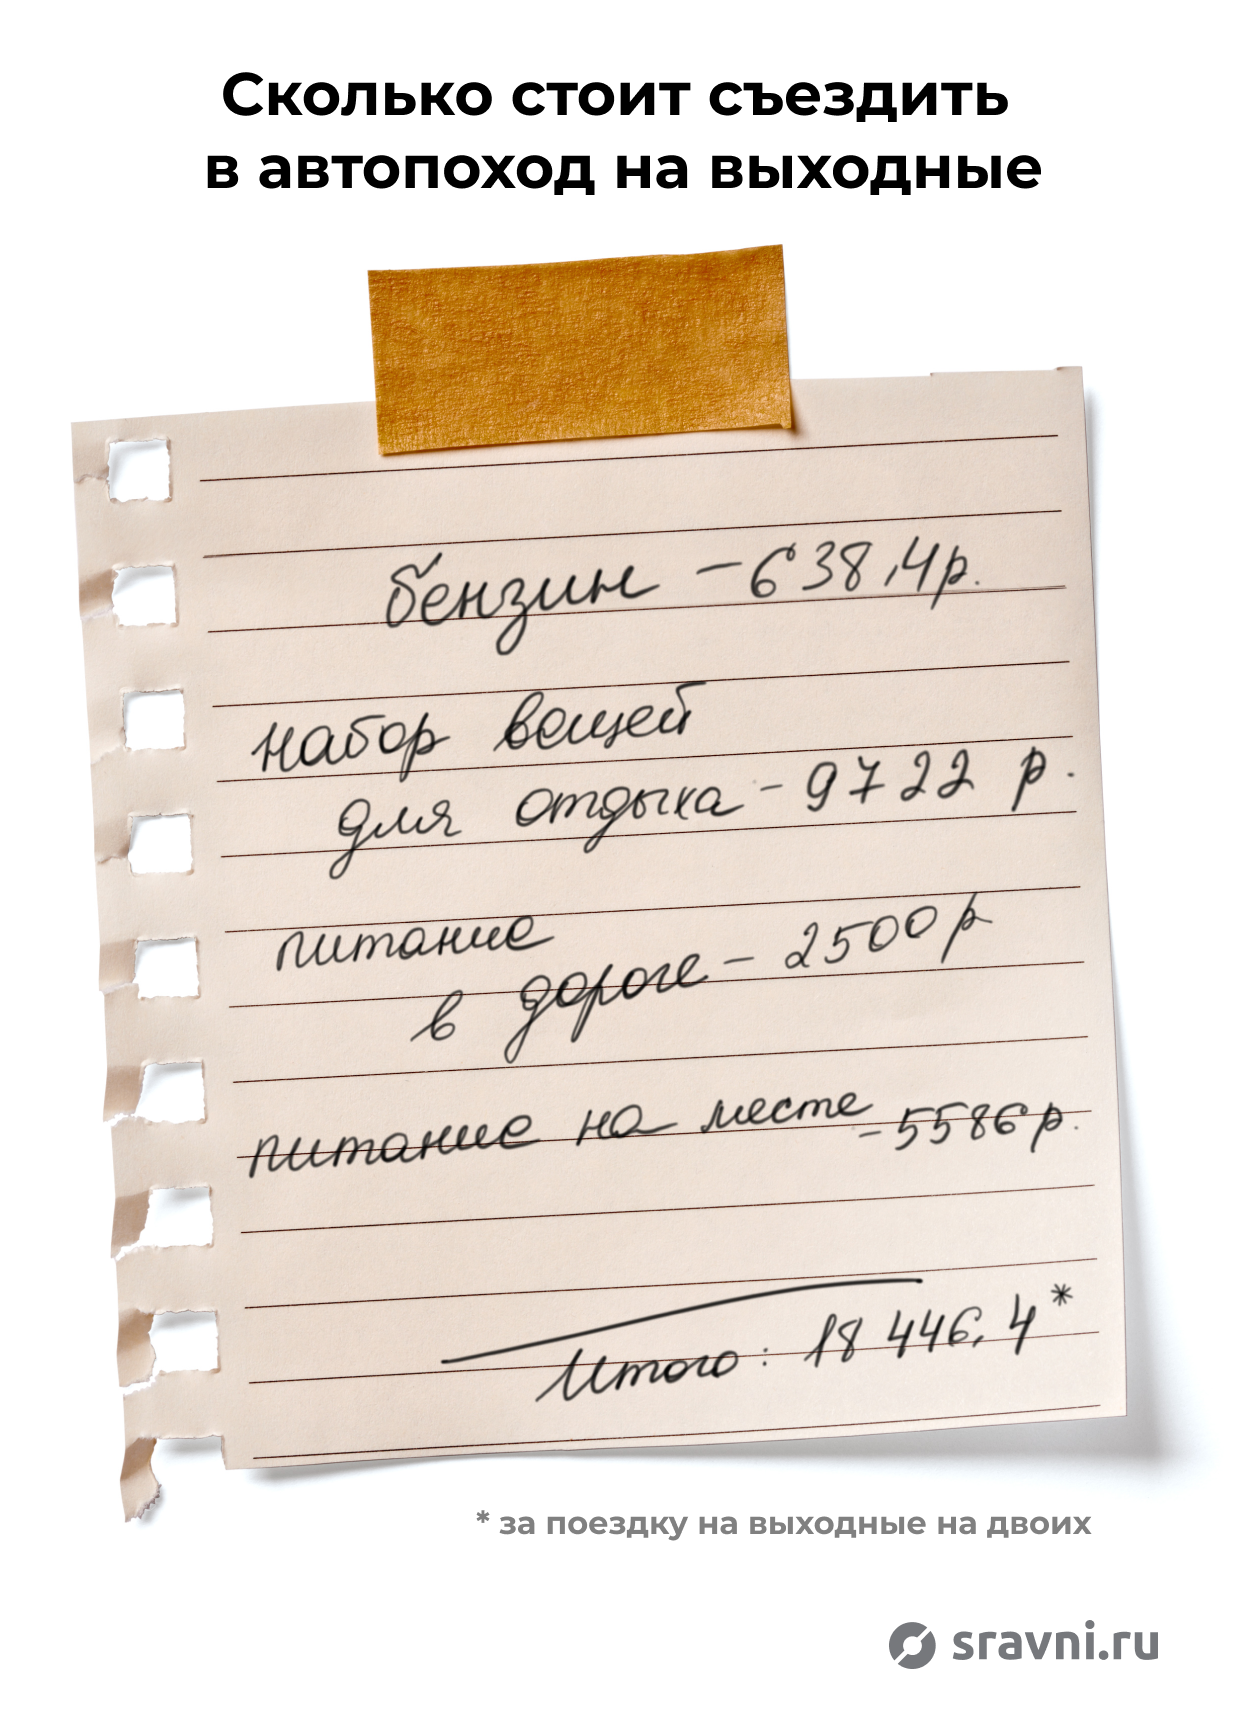 Сколько стоит съездить
в автопоход на выходные
бензин – 638,4р.
набор вещей
для отдыха – 9722 р.
питание
в дороге – 2500р
питание на месте
– 5586р.
Итого: 18 446,4*
* за поездку на выходные на двоих
sravni.ru